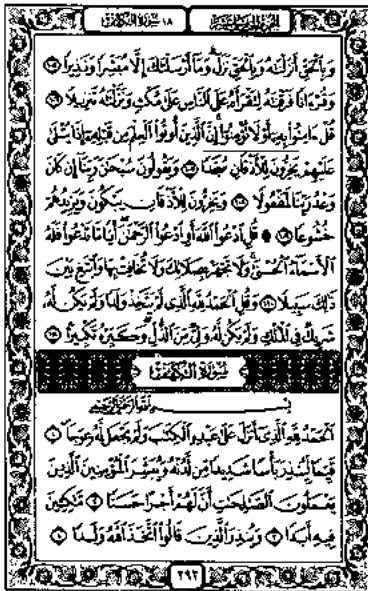 الجزء الخامس عشر
١٨ سورة الكهف
وَبِالْحَقِّ أَنزَلْنَاهُ وَبِالْحَقِّ نَزَلَ وَمَا أَرْسَلْنَاكَ إِلَّا مُبَشِّرًا وَنَذِيرًا ١٠٥
وَقُرْءَانًا فَرَقْنَاهُ لِتَقْرَأَهُ عَلَى النَّاسِ عَلَىٰ مُكْثٍ وَنَزَّلْنَاهُ تَنزِيلًا ١٠٦
قُلْ ءَامِنُوا بِهِ أَوْ لَا تُؤْمِنُوا إِنَّ الَّذِينَ أُوتُوا الْعِلْمَ مِن قَبْلِهِ إِذَا يُتْلَىٰ
عَلَيْهِمْ يَخِرُّونَ لِلْأَذْقَانِ سُجَّدًا ١٠٧ وَيَقُولُونَ سُبْحَانَ رَبِّنَا إِن كَانَ
وَعْدُ رَبِّنَا لَمَفْعُولًا ١٠٨ وَيَخِرُّونَ لِلْأَذْقَانِ يَبْكُونَ وَيَزِيدُهُمْ
خُشُوعًا ١٠٩ قُلِ ادْعُوا اللَّهَ أَوِ ادْعُوا الرَّحْمَٰنَ أَيًّا مَّا تَدْعُوا فَلَهُ
الْأَسْمَاءُ الْحُسْنَىٰ وَلَا تَجْهَرْ بِصَلَاتِكَ وَلَا تُخَافِتْ بِهَا وَابْتَغِ بَيْنَ
ذَٰلِكَ سَبِيلًا ١١٠ وَقُلِ الْحَمْدُ لِلَّهِ الَّذِي لَمْ يَتَّخِذْ وَلَدًا وَلَمْ يَكُن لَّهُ
شَرِيكٌ فِي الْمُلْكِ وَلَمْ يَكُن لَّهُ وَلِيٌّ مِّنَ الذُّلِّ وَكَبِّرْهُ تَكْبِيرًا ١١١
سورة الكهف
بِسْمِ اللَّهِ الرَّحْمَٰنِ الرَّحِيمِ
الْحَمْدُ لِلَّهِ الَّذِي أَنزَلَ عَلَىٰ عَبْدِهِ الْكِتَابَ وَلَمْ يَجْعَل لَّهُ عِوَجًا ١
قَيِّمًا لِّيُنذِرَ بَأْسًا شَدِيدًا مِّن لَّدُنْهُ وَيُبَشِّرَ الْمُؤْمِنِينَ الَّذِينَ
يَعْمَلُونَ الصَّالِحَاتِ أَنَّ لَهُمْ أَجْرًا حَسَنًا ٢ مَّاكِثِينَ
فِيهِ أَبَدًا ٣ وَيُنذِرَ الَّذِينَ قَالُوا اتَّخَذَ اللَّهُ وَلَدًا ٤
٢٩٣